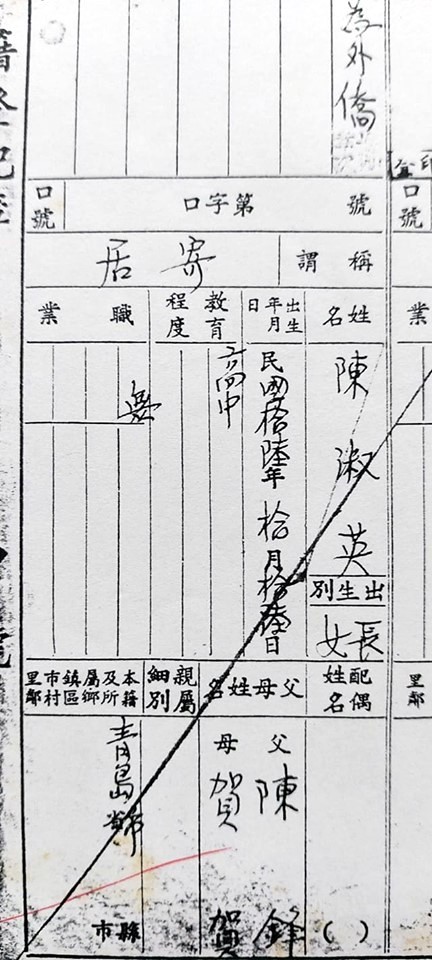 為外僑
口號
第字口號
稱謂
寄居
姓名
陳淑英
出生別
長女
出生年月日
民國拾陸年拾月拾陸日
教育程度
高中
職業
配偶姓名
父母姓名
父 陳鋒
母 賀
賀
( )
親屬細別
本籍及所屬鄉鎮區市村里鄰
青島市
縣市
口號
業
里鄰